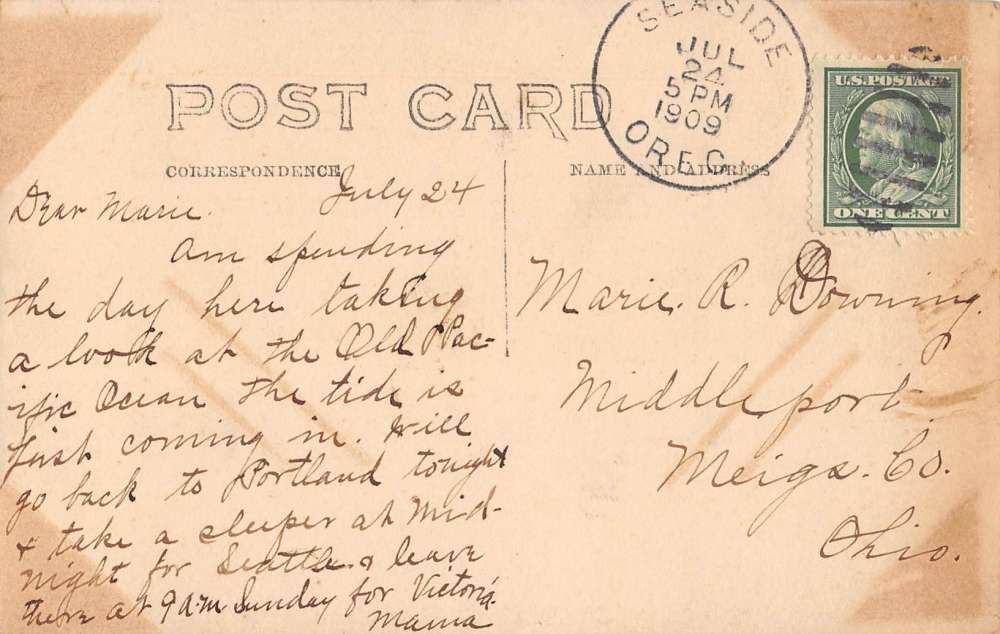 POST CARD
CORRESPONDENCE
NAME AND ADDRESS
SEASIDE
JUL
24
5 PM
1909
OREG.
U.S. POSTAGE
ONE CENT
July 24
Dear Marie.
Am spending
the day here taking
a look at the Old Pac-
ific Ocean the tide is
just coming in. Will
go back to Portland tonight
+ take a sleeper at Mid-
night for Seattle & leave
there at 9 a.m Sunday for Victoria.
Mama
Marie. R. Downing.
Middleport.
Meigs. Co.
Ohio.